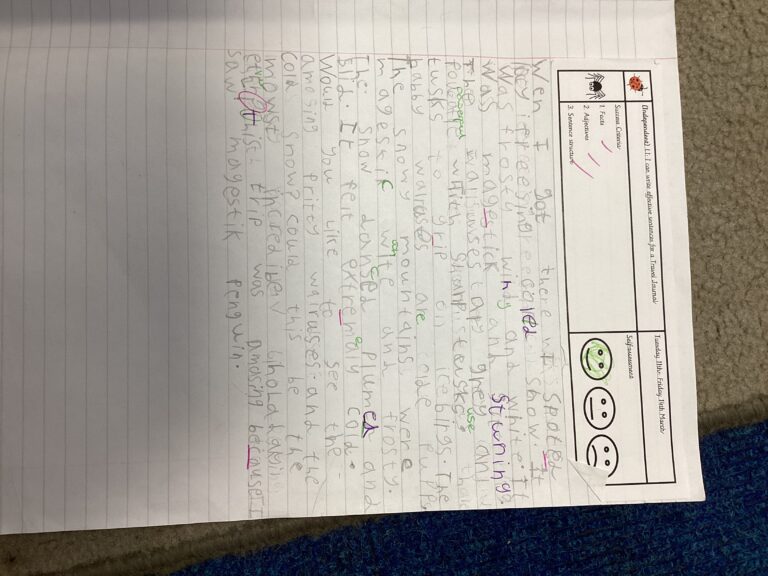 (Independent) LI: I can write effective sentences for a Travel Journal
Tuesday 11th- Friday 14th March
Success Criteria
Self-assessment
1. Facts
2. Adjectives
3. Sentence structure
Wen I got there wi spoted
icy snow. It
was frosty windy and white. It
was magestick and stuning.
The walrses are grey and
powerful with sharp tusks. use
tusks to grip on icebirgs. The
babby walrases are cide
The snowy mountains were
magestik wite and frosty.
The snow danced plumed and
blid. It felt extremaly cold.
Woud you like to see the
amosing prity walruses and the
cold snow? could this be the
most incredbel
ever this trip was amosing because I
saw magestik penguin.